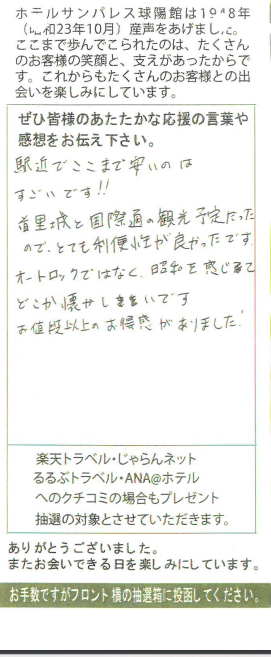 ホテルサンパレス球陽館は1948年
(昭和23年10月)産声をあげました。
ここまで歩んでこられたのは、たくさん
のお客様の笑顔と、支えがあったからで
す。これからもたくさんのお客様との出
会いを楽しみにしています。
ぜひ皆様のあたたかな応援の言葉や
感想をお伝え下さい。
駅近でここまで安いのは
すごいです!!
首里城と国際通の観光予定だった
ので、とても利便性が良かったです
オートロックではなく、昭和を感じるて
どこか懐かしきもいです
お値段以上のお得感がありました!
楽天トラベル・じゃらんネット
るるぶトラベル・ANA@ホテル
へのクチコミの場合もプレゼント
抽選の対象とさせていただきます。
ありがとうございました。
またお会いできる日を楽しみにしています。
お手数ですがフロント横の抽選箱に投函してください。